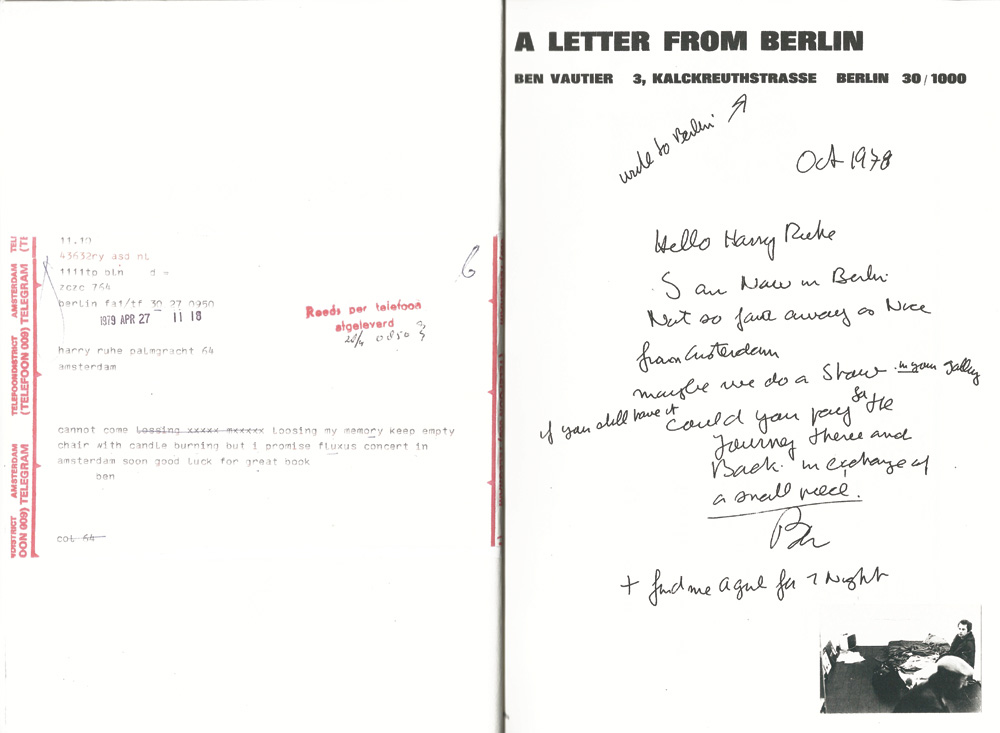 11.10
43632ry asd nl
1111to bln d =
zczc 764
berlin fa1/tf 30 27 0950
1979 APR 27 11 18
6
Reeds per telefoon
afgeleverd
28/4 0850
harry ruhe palmgracht 64
amsterdam
cannot come Lossing xxxxx mxxxxx Loosing my memory keep empty
chair with candle burning but i promise fluxus concert in
amsterdam soon good luck for great book
ben
col 64
TELEFOONDISTRICT AMSTERDAM
(TELEFOON 009) TELEGRAM
A LETTER FROM BERLIN
BEN VAUTIER 3, KALCKREUTHSTRASSE BERLIN 30/1000
write to Berlin
Oct 1978
Hello Harry Ruhe
I am Now in Berlin
Not so far away as Nice
from Amsterdam
maybe we do a Show in your gallery
if you still have it
Could you pay for the
Journey there and
Back in exchange of
a small piece.
Ben
+ find me a girl for 1 Night